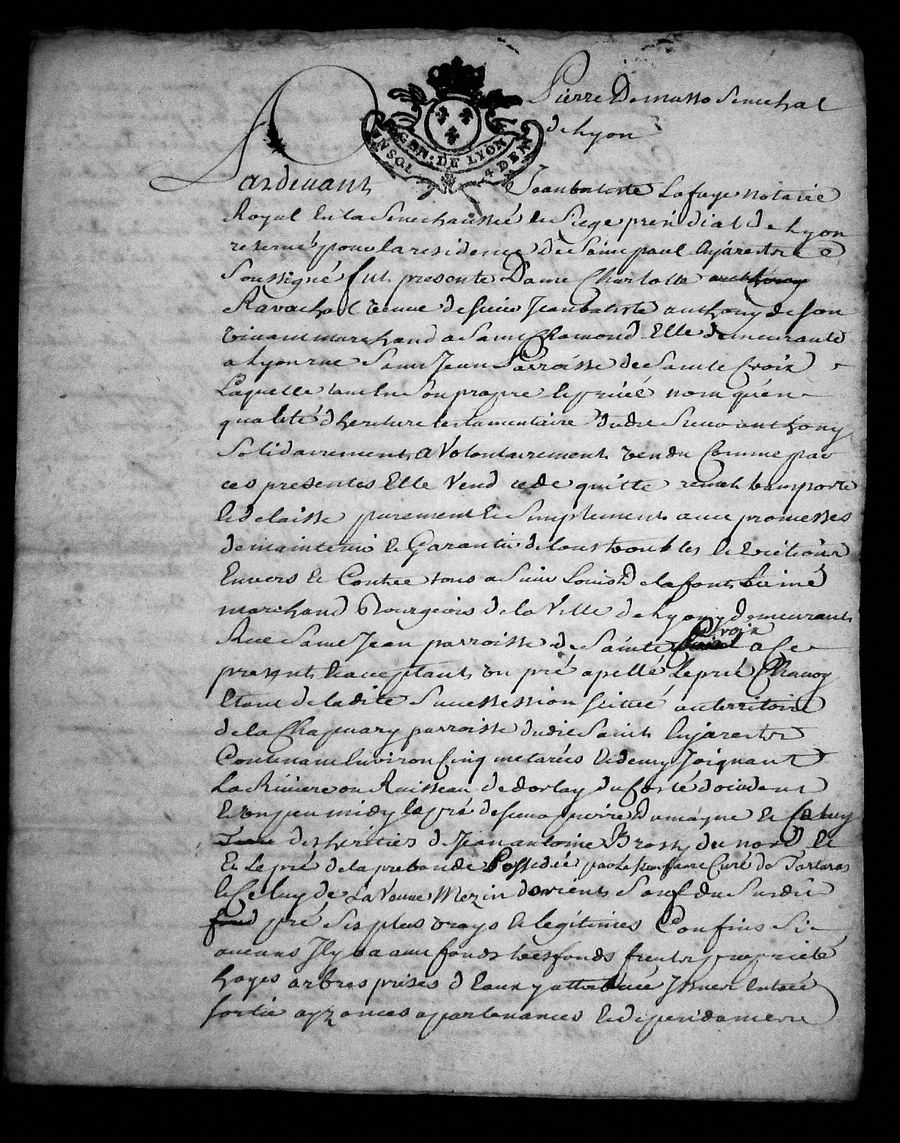 Pierre Demasso Senechal
de Lyon
GEN. DE LYON
Pardevant Jeanbatiste Lafaye notaire
Royal En la Senechaussée Et Siege presidial de Lyon
reservé pour la residence de Saint paul En jarestz
Soussigné fut presente Dame Charlotte
Ravachol veuve de Sieur Jeanbatiste anthony de son
vivant marchand a Saint Chamond Elle demeurante
a Lyon rue Saint Jean Parroisse de Sainte Croix
Laquelle tant En Son propre Et privé nom qu'en
qualité d'heritiere testamentaire dudit Sieur anthony
Solidairement a Volontairement vendu Comme par
ces presentes Elle Vend cede quitte remet transporte
Et delaisse purement Et Simplement avec promesses
de maintenir Et Garantir de tous troubles Et Evictions
Envers Et Contre tous a Sieur Louis Delafont
marchand Bourgeois de la Ville de Lyon y demeurant
Rue Saint Jean parroisse de Sainte Croix a Ce
present Et acceptant un pré apellé Le pré Chavoy
Etant de ladite Sucession Scitué au territoire
de la Chapuary parroisse dudit Saint En jarestz
Contenant Environ Cinq metarées Et demy Joignant
La Riviere ou Ruisseau de dorlay du Costé d'occident
Et un peu midy le pré de Sieur pierre Dumagne Et Celuy
des heritiers de Jean antoine Brossy du nord Et
Et Le pré de la prebande possedée par Le Sieur faure Curé de Tartaras
Et Celuy de La Veuve Mezin d'orient Sauf du Susdit
pré Ses plus vrays Et legitimes Confins Si
aucuns Il y a avec fonds tresfonds fruits propriété
hayes arbres prises d'Eaux y attribuée Issues Entrée
Sortie ayzances apartenances Et dependances